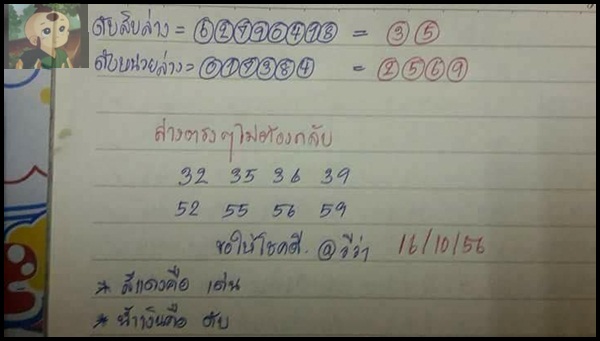 ดับสิบล่าง = 62190478 = 35
ดับหน่วยล่าง = 017384 = 2569
ล่างตรงๆไม่ต้องกลับ
32 35 36 39
52 55 56 59
ขอให้โชคดี. @ชีว่า 16/10/56
* สีแดงคือ เด่น
* น้ำเงินคือ ดับ